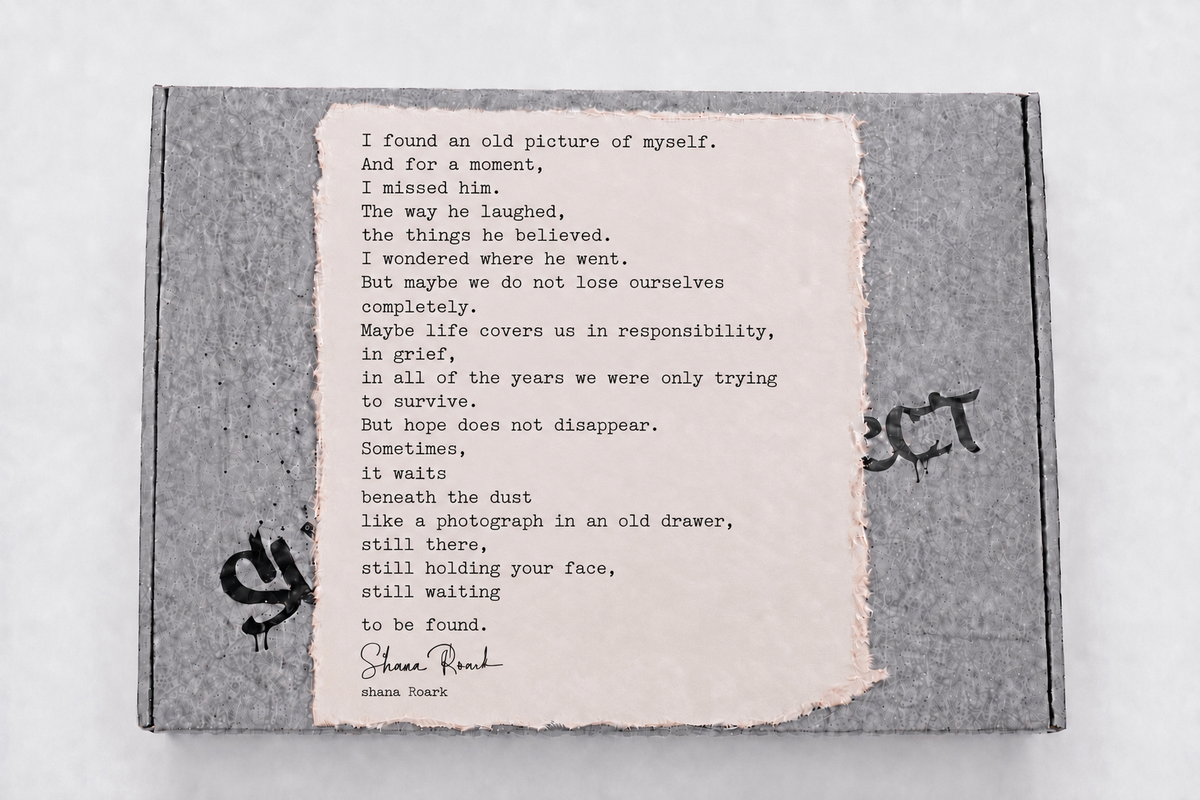 I found an old picture of myself.
And for a moment,
I missed him.
The way he laughed,
the things he believed.
I wondered where he went.
But maybe we do not lose ourselves
completely.
Maybe life covers us in responsibility,
in grief,
in all of the years we were only trying
to survive.
But hope does not disappear.
Sometimes,
it waits
beneath the dust
like a photograph in an old drawer,
still there,
still holding your face,
still waiting
to be found.
Shana Roark
shana Roark